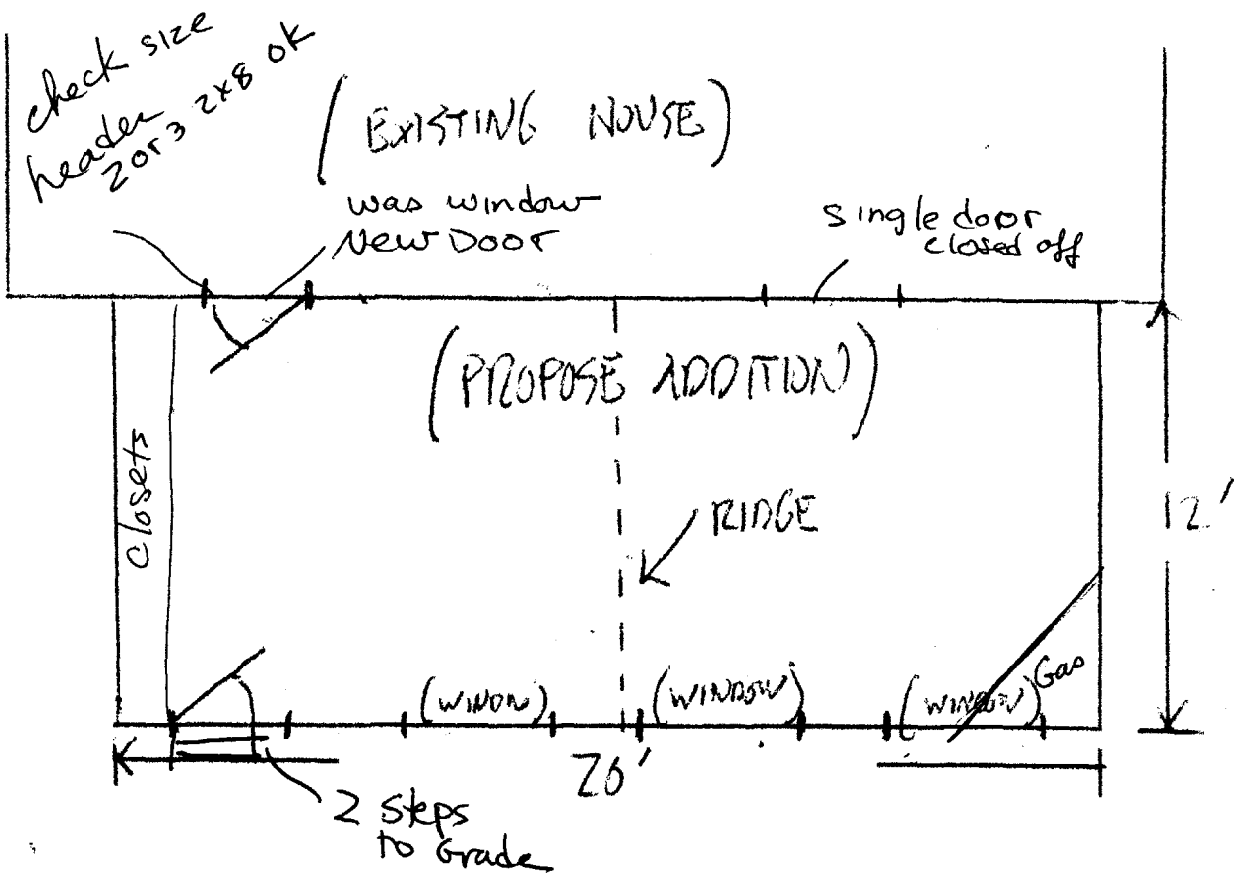 check size
header
2 or 3 2x8 ok
(EXISTING HOUSE)
was window
New Door
single door
closed off
(PROPOSE ADDITION)
closets
RIDGE
12'
Gas
(WINDOW)
(WINDOW)
2 steps
to Grade